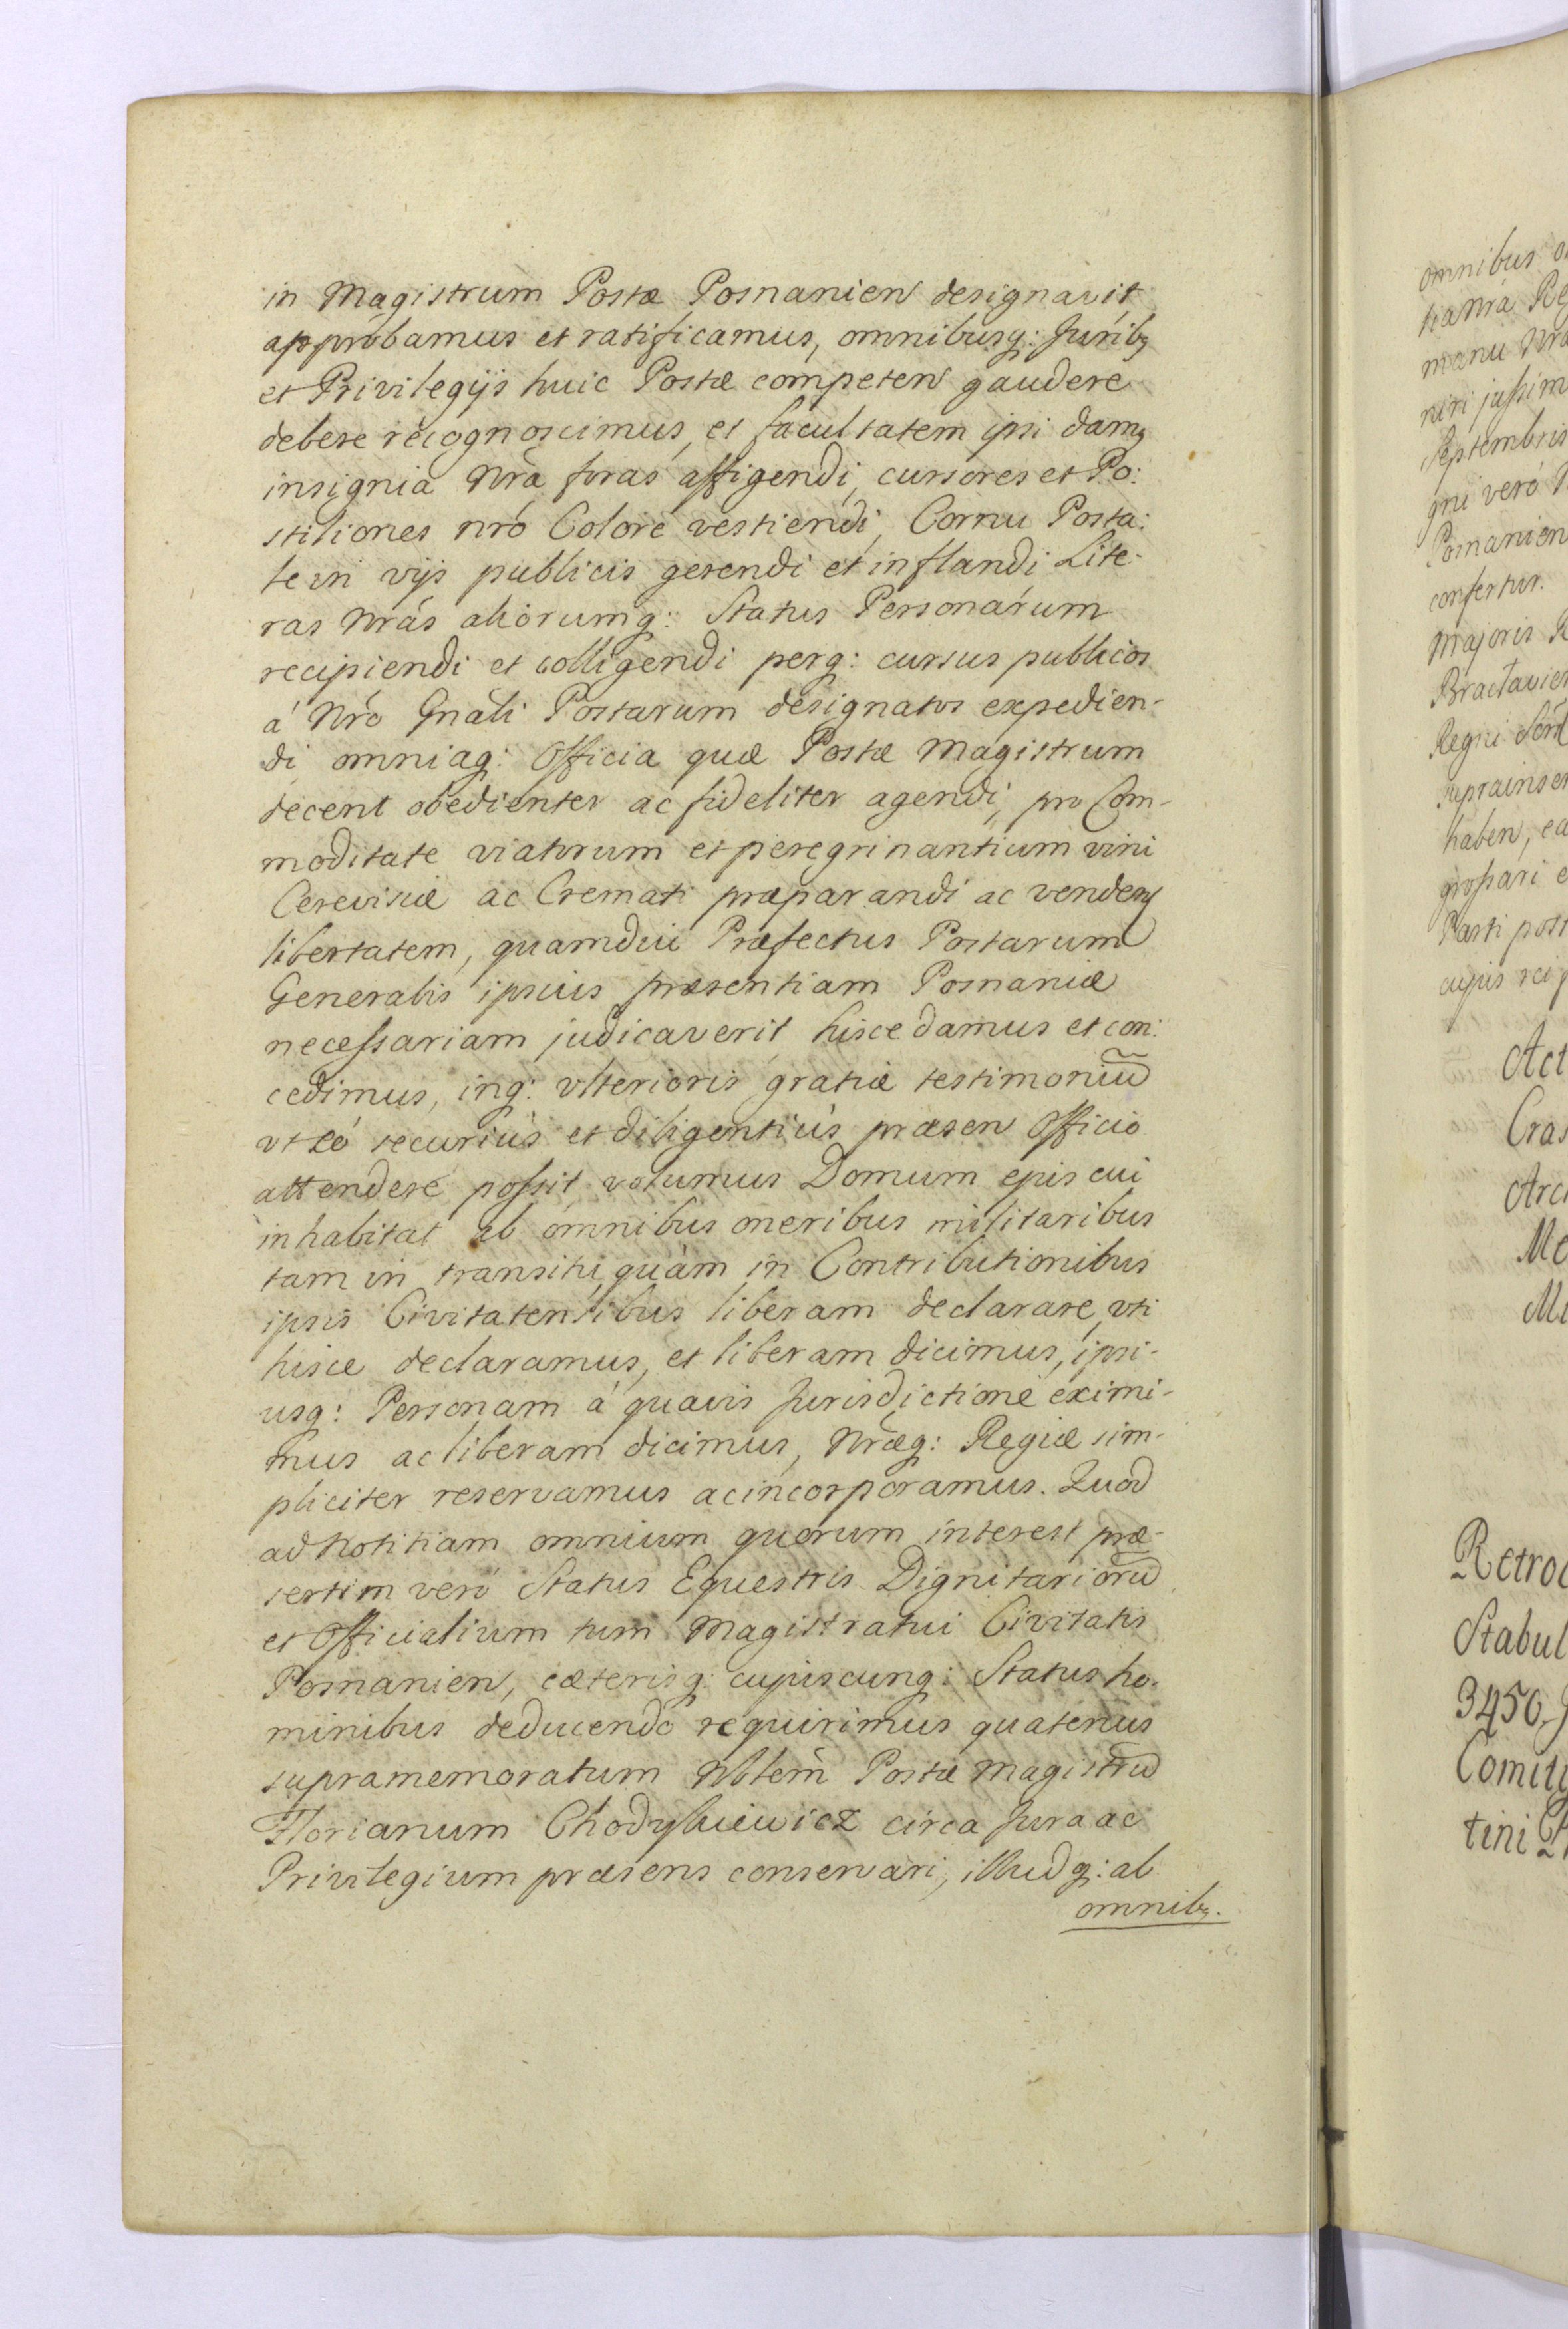 in Magistrum Postæ Posnanien designavit,
approbamus et ratificamus, omnibusq: Juribq
et Privilegijs huic Postæ competen gaudere
debere recognoscimus, et facultatem ipsi damq
insignia Nrã foras affigendi, cursores et Po:
stiliones nrõ Colore vestiendi, Cornu Posta:
le in vijs publicis gerendi et inflandi Lite-
ras Nrãs aliorumq: Status Personarum
recipiendi et colligendi perq: cursus publicos
á Nrõ Gnãli Postarum designatos expedien-
di omniaq: Officia quæ Postæ Magistrum
decent obedienter ac fideliter agendi, pro Com-
moditate viatorum et peregrinantium vini
Cerevisiæ ac Cremati præparandi ac vendendi
libertatem, quamdiu Præfectus Postarum
Generalis ipsius præsentiam Posnaniæ
necessariam judicaverit hisce damus et con:
cedimus, inq: vlterioris gratiæ testimoniũ
vt eó securiùs et diligentiùs præsen Officio
attendere possit, volumus Domum ejus cui
inhabitat ab omnibus oneribus militaribus
tam in transitu, quàm in Contributionibus
ipsis Civitatensibus liberam declarare, vti
hisce declaramus, et liberam dicimus, ipsi-
usq: Personam á quavis Jurisdictione eximi-
mus ac liberam dicimus, Nræq: Regiæ sim-
pliciter reservamus ac incorporamus. Quod
ad Notitiam omnium quorum interest præ-
sertim veró Status Equestris Dignitariorũ
et Officialium tum Magistratui Civitatis
Posnanien, cæterisq: cujuscunq: Status ho-
minibus deducendo requirimus quatenus
supramemoratum Nblem̃ Postæ Magistrũ
Florianum Chodykiewicz circa Jura ac
Privilegium præsens conservari, illudq: ab
omnibq.
omnibus
tia Nrã
manu
niri jussim
Septembris
gni veró
Posnanien
confertur.
Majoris
Bractavien
Regni
haben,
Parti
cujus
Act
Cras
Retroc
Stabul
3450,
tini